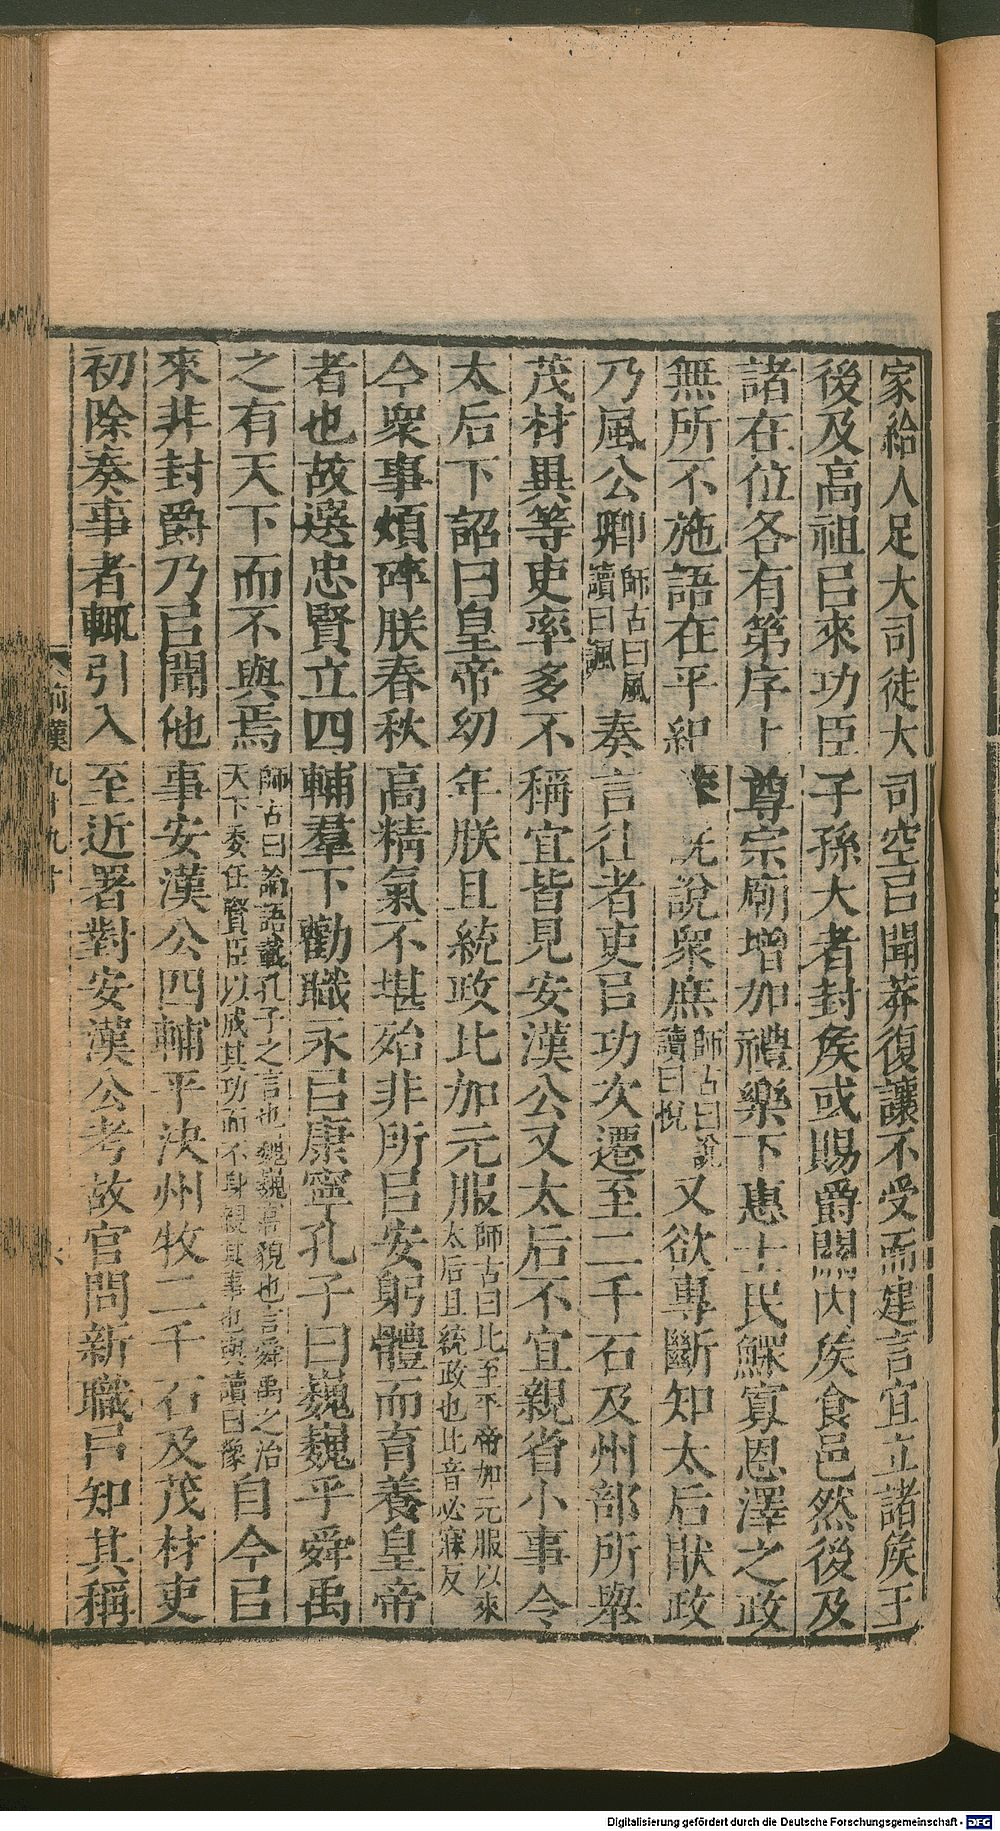 家給人足大司徒大司空㠯聞莽復讓不受而建言宜立諸矦王
後及高祖㠯來功臣子孫大者封矦或賜爵關內矦食邑然後及
諸在位各有第序上尊宗廟增加禮樂下惠士民鰥寡恩澤之政
無所不施語在平紀莽既說衆庶師古曰說讀曰悅又欲專斷知太后猒政
乃風公卿師古曰風讀曰諷奏言往者吏㠯功次遷至二千石及州部所舉
茂材異等吏率多不稱宜皆見安漢公又太后不宜親省小事令
太后下詔曰皇帝幼年朕且統政比加元服師古曰比至平帝加元服以來太后且統政也比音必寐反
今衆事煩碎朕春秋高精氣不堪殆非所㠯安躬體而育養皇帝
者也故選忠賢立四輔羣下勸職永㠯康寧孔子曰巍巍乎舜禹
之有天下而不與焉師古曰論語載孔子之言也巍巍高貌也言舜禹之治天下委任賢臣以成其功而不身親其事也與讀曰豫自今㠯
來非封爵乃㠯聞他事安漢公四輔平決州牧二千石及茂材吏
初除奏事者輒引入至近署對安漢公考故官問新職㠯知其稱
前漢九十九上
Digitalisierung gefördert durch die Deutsche Forschungsgemeinschaft - DFG